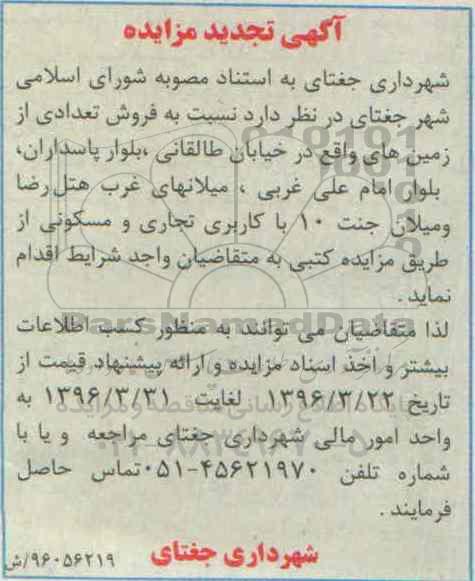 آگهی تجدید مزایده
شهرداری جغتای به استناد مصوبه شورای اسلامی
شهر جغتای در نظر دارد نسبت به فروش تعدادی از
زمین های واقع در خیابان طالقانی ،بلوار پاسداران،
بلوار امام علی غربی ، میلانهای غرب هتل رضا
ومیلان جنت ۱۰ با کاربری تجاری و مسکونی از
طریق مزایده کتبی به متقاضیان واجد شرایط اقدام
نماید .
ParsNamadData
لذا متقاضیان می توانند به منظور کسب اطلاعات
بیشتر و اخذ اسناد مزایده و ارائه پیشنهاد قیمت از
تاریخ ۱۳۹۶/۳/۲۲ لغایت ۱۳۹۶/۳/۳۱ به
پایگاه اطلاع رسانی مناقصه و مزایده
واحد امور مالی شهرداری جغتای مراجعه و یا با
شماره تلفن ۴۵۶۲۱۹۷۰-۰۵۱تماس حاصل
فرمایند .
شهرداری جغتای
۹۶۰۵۶۲۱۹/ش